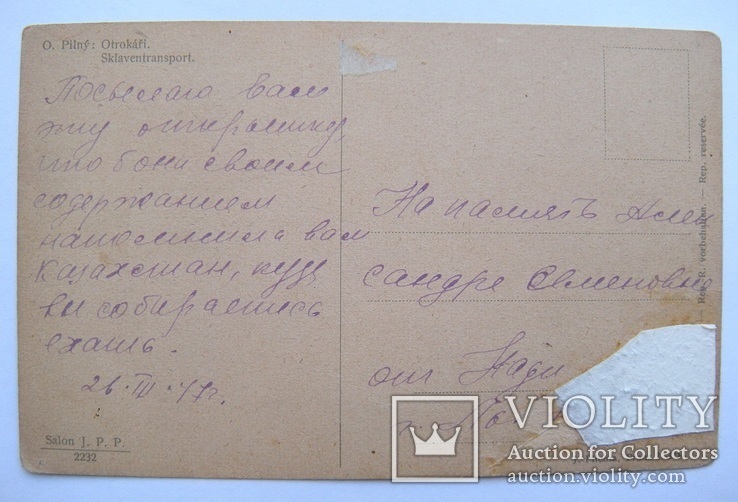 O. Pilný: Otrokáři.
Sklaventransport.
Посылаю вам
эту открытку,
что бы она своим
содержанием
напомнила вам
Казахстан, куда
вы собираетесь
ехать.
26. III. 47 г.
Salon J. P. P.
2232
На память Алек
сандре Семеновне
от Нади
Rep. R. vorbehalten. — Rep. reservée.
VIOLITY
Auction for Collectors
auction.violity.com